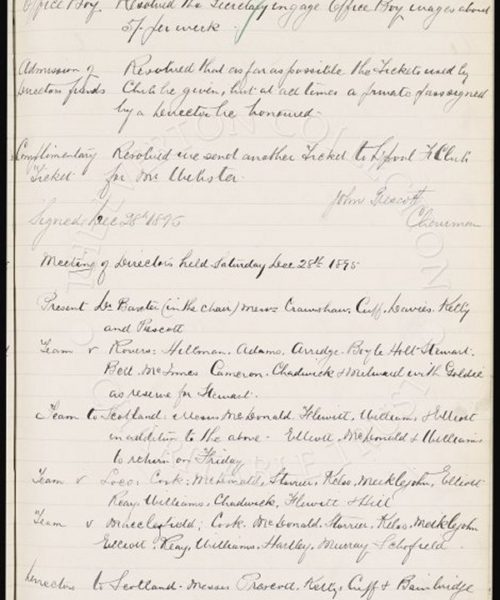 Office Boy Resolved the Secretary engage Office Boy wages about
5/- per week.
Admission of Resolved that as far as possible the Tickets used by
Directors friends Club be given, but at all times a private pass signed
by a Director be honoured.
Complimentary Resolved we send another Ticket to Lpool F Club
Ticket for Mr Webster.
John Prescott
Signed Dec 28th 1895 Chairman
Meeting of Directors held Saturday Dec 28th 1895
Present Dr Baxter (in the chair) Messrs Crawshaw, Cuff, Davies, Kelly
and Prescott
Team v Rovers: Hillman, Adams, Arridge, Boyle Holt Stewart.
Bell McInnes Cameron. Chadwick & Milward with Goldie
as reserve for Stewart.
Team to Scotland. Messrs McDonald, Flewitt, Williams & Elliott
in addition to the above. Elliott, McDonald & Williams
to return on Friday
Team v Loco: Cook. McDonald, Storrier, Kelso, Meiklejohn, Elliott
Reay, Williams, Chadwick, Flewitt & Hill
Team v Macclesfield; Cook. McDonald, Storrier, Kelso, Meiklejohn
Elliott, Reay, Williams, Hartley, Murray Schofield.
Directors to Scotland. Messrs Prescott, Kelly, Cuff & Bainbridge